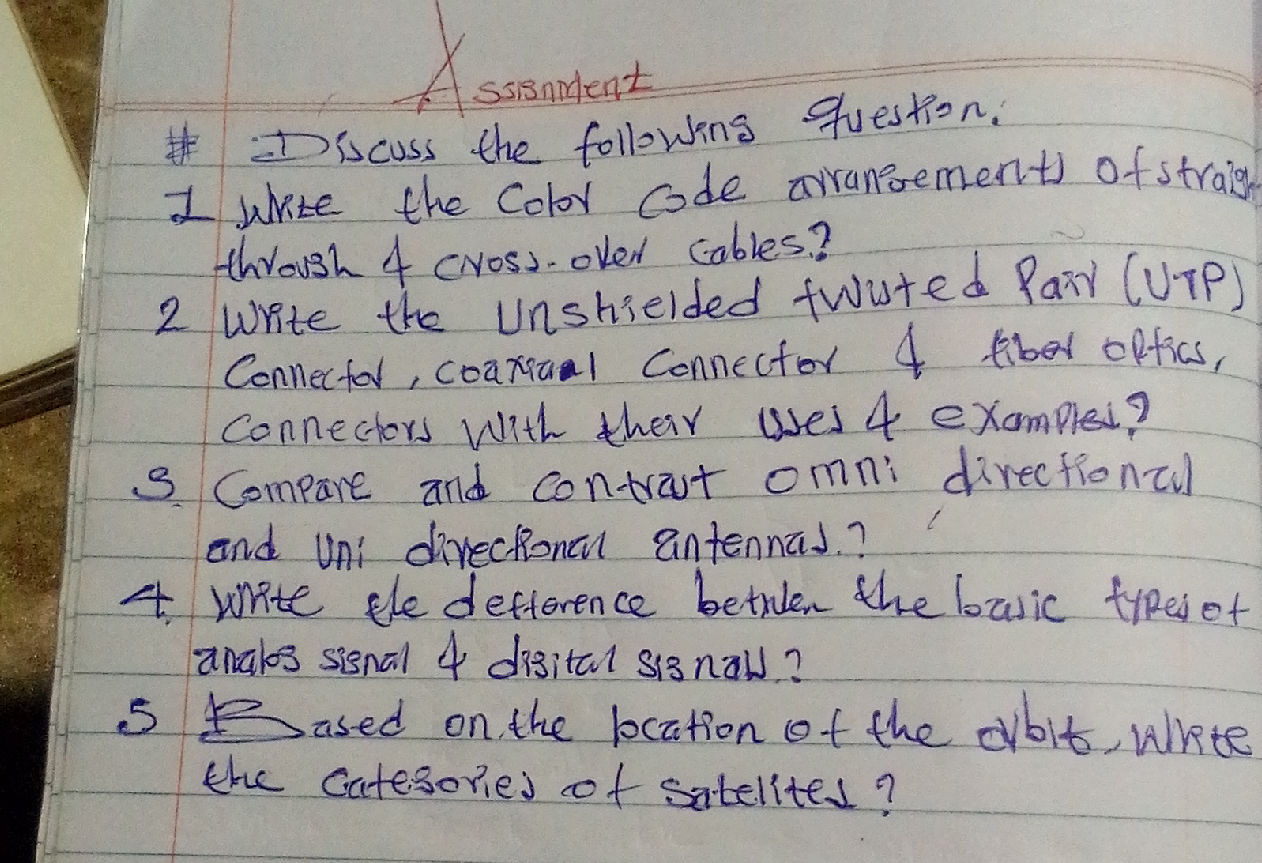 Assignment
# Discuss the following Question.
1 Write the Color Code arrangements of straigh
through & cross-over cables?
2 Write the Unshielded twisted Pair (UTP)
Connector, coaxiaal Connector & fiber optics,
Connectors With their uses & examples?
3 Compare and contrast omni directional
and Uni directional antennas.?
4. Write the defference between the basic types of
analog signal & digital signal?
5 Based on the location of the orbit, Write
the Categories of Satelites?